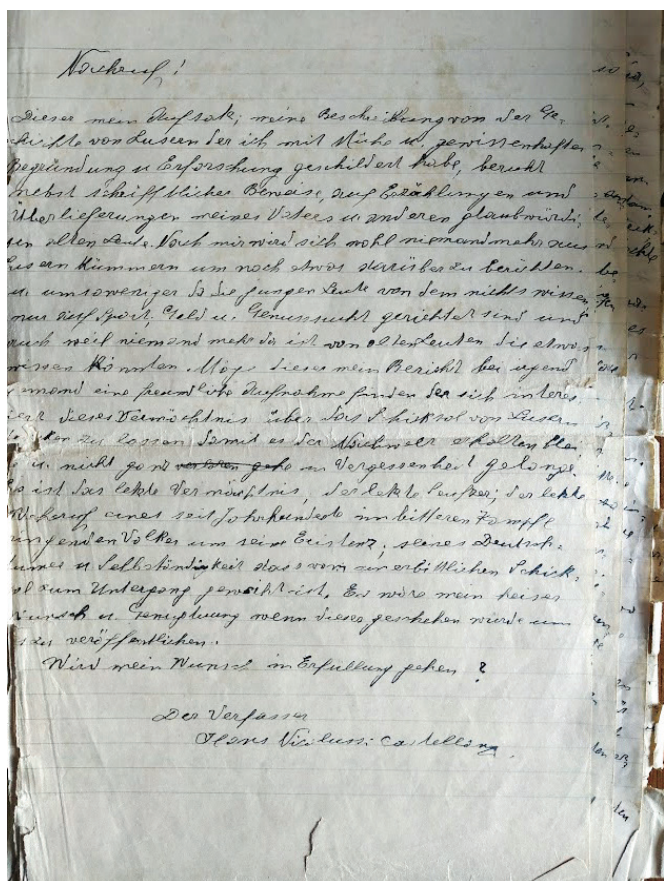 Nachruf!
Dieser mein Aufsatz; meine Beschreibung von der Ge-
schichte von Lusern der ich mit Mühe u. gewissenhafter
Begründung u Erforschung geschildert habe, beruht
nebst schriftlicher Beweise, auf Erzählungen und
Überlieferungen meines Vaters u. anderen glaubwürdi-
gen alten Leute. Nach mir wird sich wohl niemand mehr aus
Lusern kümmern um noch etwas darüber zu berichten.
u. umsoweniger da die jungen Leute von dem nichts wissen
nur auf Sport, Geld u. Genusssucht gerichtet sind und
auch weil niemand mehr da ist von alten Leuten die etwas
wissen könnten. Möge dieses mein Bericht bei irgend
jemand eine freundliche Aufnahme finden der sich interes
iert dieses Vermächtnis über das Schicksal von Lusern
ken zu lassen damit es der Nachwelt erhalten blei
u. nicht ganz verloren gehe in Vergessenheit gelange.
Es ist das letzte Vermächtnis, der letzte Seufzer; der letzte
Wehruf eines seit Jahrhunderte im bitteren Kampfe
ringenden Volkes um seine Existenz, seines Deutsch-
tumes u Selbständigkeit das vom unerbittlichen Schick-
sal zum Untergang geweiht ist. Es wäre mein heises
Wunsch u. Genugtuung wenn dieses geschehen würde um
es zu veröffentlichen.
Wird mein Wunsch in Erfüllung gehen?
Der Verfasser
Hans Nicolussi Castellang